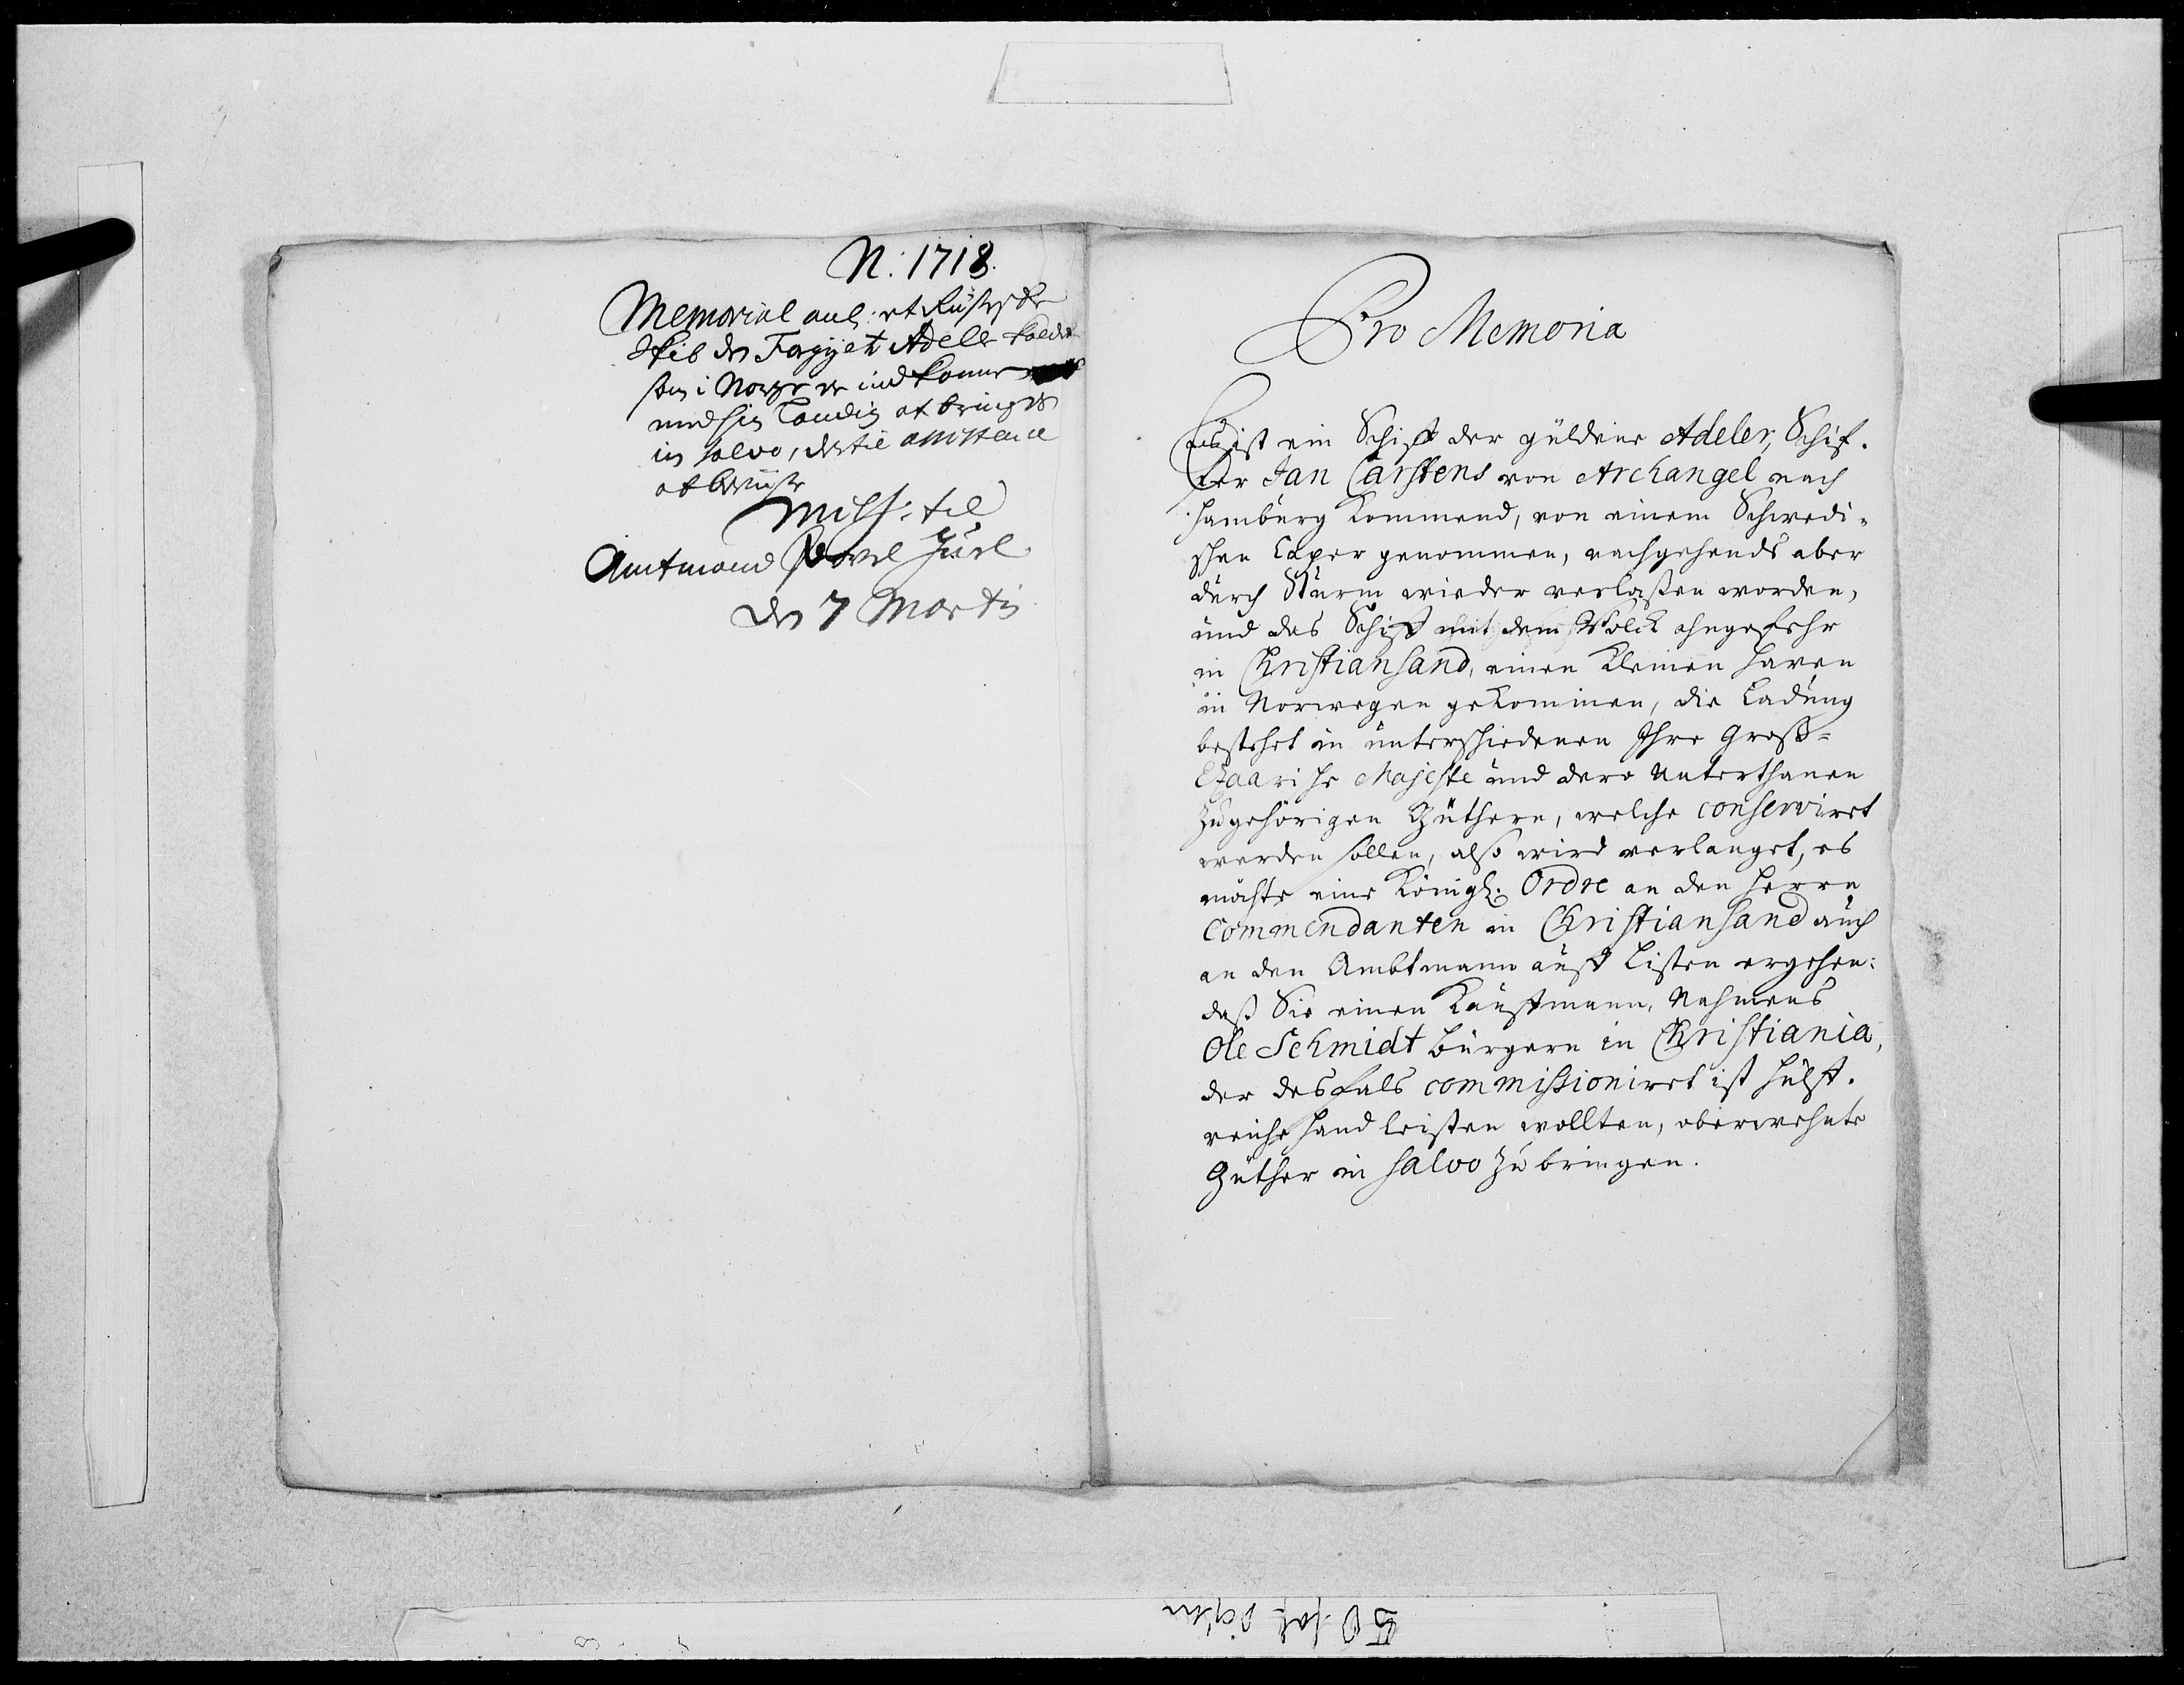 N: 1718.
Memorial anl: et Russiske
Skib den Forgyjet Adeler kaldet
som i Norge er ind kommen
med sin Ladning at bringes
in salvo, der til assistence
at beviise
Miss: til
Amtmand Povel Juel
den 7 Martij
Pro Memoria
Es ist ein Schiff der güldene Adeler, Schif-
fer Jan Carstens von Archangel nach
Hamburg kommend, von einem Schwedi-
schen Caper genommen, nachgehends aber
durch Sturm wieder verlaßen worden,
und das Schiff mit dem Volck ohngefehr
in Christiansand, einen kleinen Haven
in Norwegen gekommen, die Ladung
bestehet in unterschiedenen Ihre Groß-
Czaarische Majeste und dero Unterthanen
zugehörigen Güthern, welche conserviret
werden sollen, also wird verlanget, es
möchte eine Königl. Ordre an den Herrn
Commendanten in Christiansand auch
an den Ambtmann auff Listen ergehen:
daß Sie einen Kauffmann, Nahmens
Ole Schmidt Bürgern in Christiania,
der desfals commissioniret ist hülff-
reiche Hand leisten wollten, oberwehnte
Güther in salvo zu bringen.